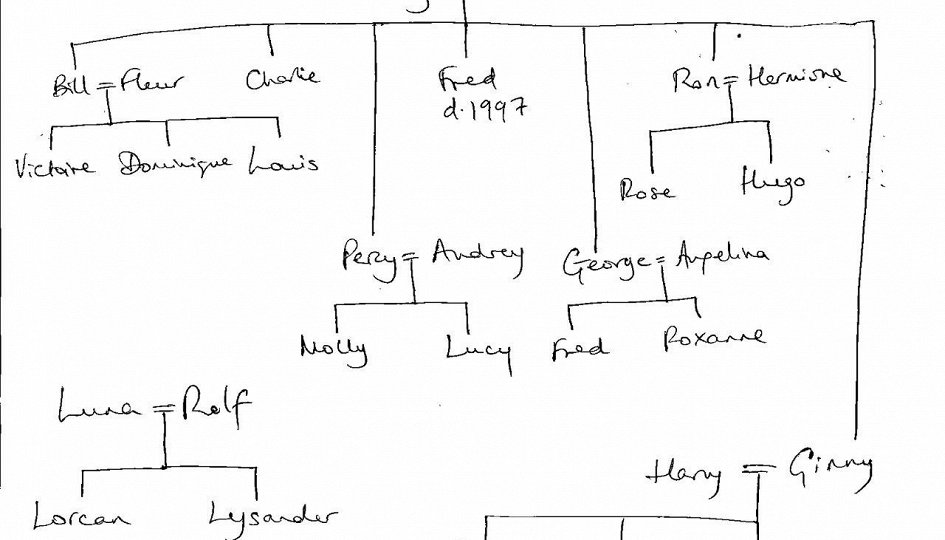 Bill = Fleur
Charlie
Fred
d. 1997
Ron = Hermione
Victoire Dominique Louis
Rose
Hugo
Percy = Audrey
George = Angelina
Molly
Lucy
Fred
Roxanne
Luna = Rolf
Lorcan
Lysander
Harry = Ginny